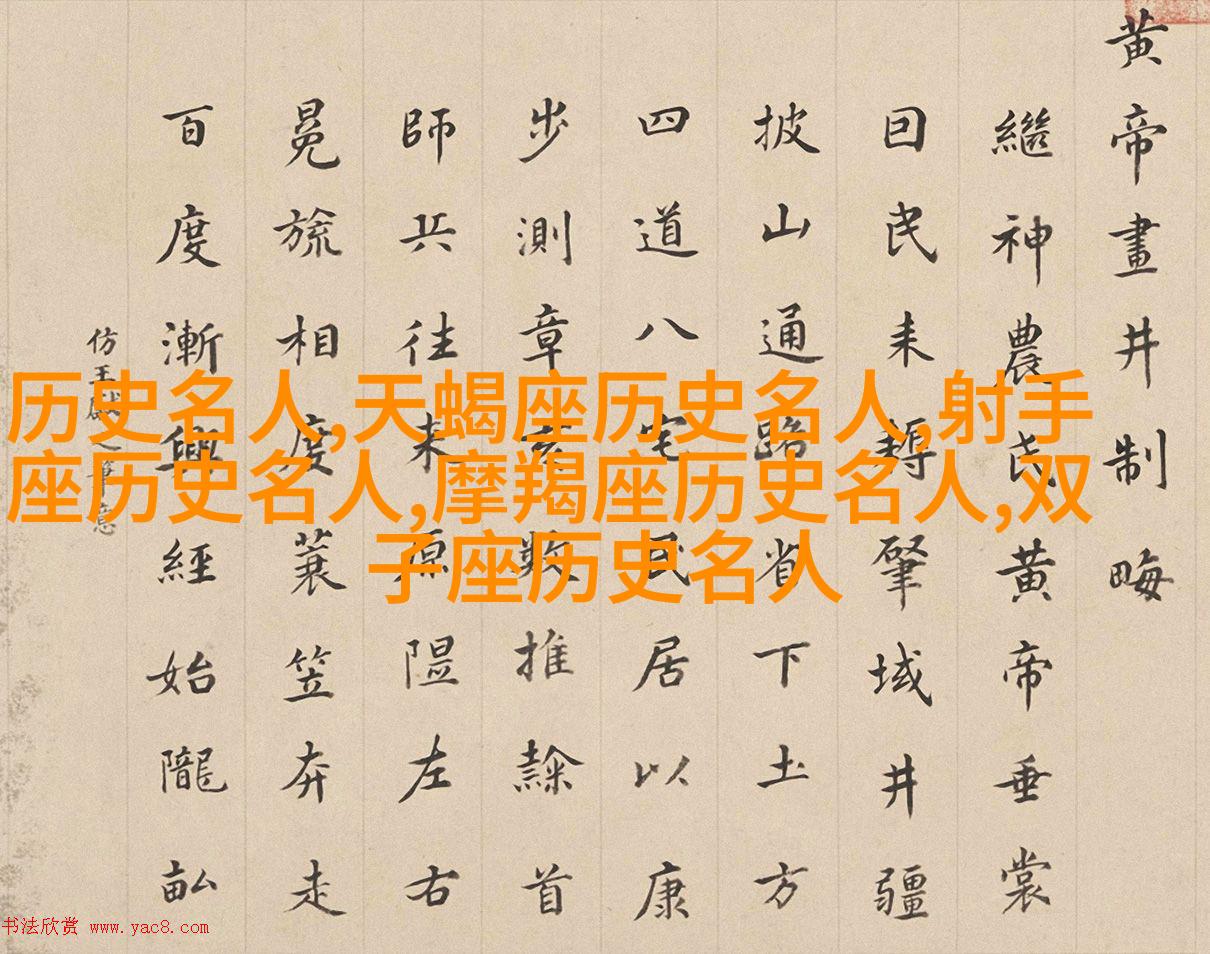 黄帝畫井制畮
繼神農氏黄帝垂裳
囙民耒耨肇域井疆
披山通路省下土方
四道八宅民居以康
步測章亥數推隸首
師兵往来原隰左右
冕旒相度蓑笠奔走
百度漸興經始隴畝
仿王獻之筆意
历史名人,天蝎座历史名人,射手
座历史名人,摩羯座历史名人,双
子座历史名人
书法欣赏 www.yac8.com